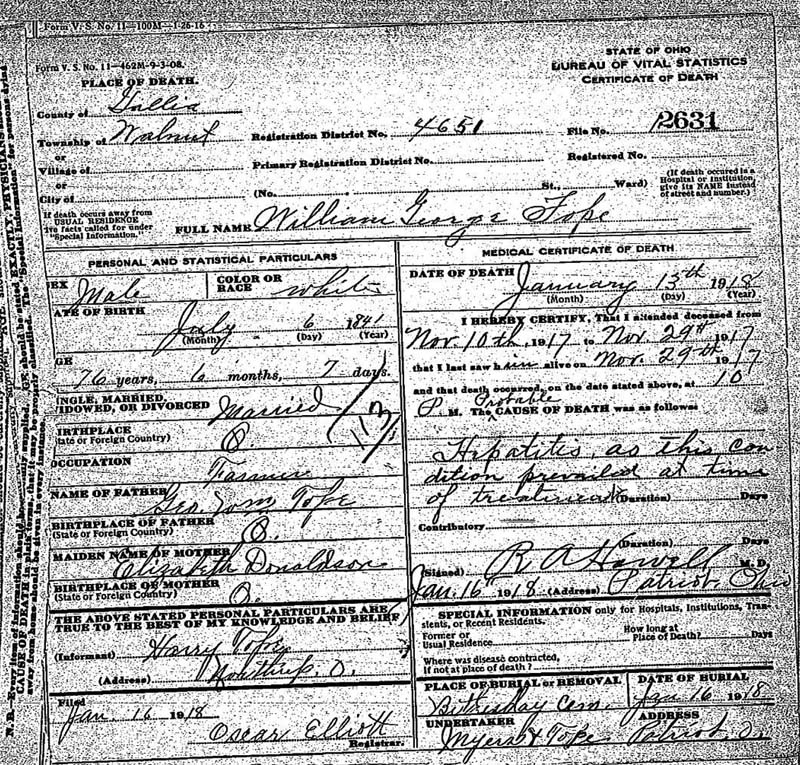 Form V. S. No. 11—100M—1-26-16
Form V. S. No. 11—462M-9-3-08.
STATE OF OHIO
BUREAU OF VITAL STATISTICS
CERTIFICATE OF DEATH
PLACE OF DEATH.
County of Gallia
Township of Walnut Registration District No. 4651 File No. 2631
or
Village of Primary Registration District No. Registered No.
or
City of (No. St., Ward) (If death occured in a Hospital or Institution, give its NAME instead of street and number.)
If death occurs away from
USUAL RESIDENCE
give facts called for under
"Special Information."
FULL NAME William George Tope
PERSONAL AND STATISTICAL PARTICULARS
SEX Male COLOR OR RACE white
DATE OF BIRTH
July 6 1841
(Month) (Day) (Year)
AGE
76 years, 6 months, 7 days.
SINGLE, MARRIED,
WIDOWED, OR DIVORCED Married
113
BIRTHPLACE
(State or Foreign Country) O.
OCCUPATION
Farmer
NAME OF FATHER
Geo. Tope
BIRTHPLACE OF FATHER
(State or Foreign Country) O.
MAIDEN NAME OF MOTHER
Elizabeth Donaldson
BIRTHPLACE OF MOTHER
(State or Foreign Country) O.
THE ABOVE STATED PERSONAL PARTICULARS ARE
TRUE TO THE BEST OF MY KNOWLEDGE AND BELIEF
(Informant) Harry Tope
(Address) Northup, O.
Filed
Jan. 16 1918
Oscar Elliott
Registrar.
MEDICAL CERTIFICATE OF DEATH
DATE OF DEATH
January 13th 1918
(Month) (Day) (Year)
I HEREBY CERTIFY, That I attended deceased from
Nov. 10th, 1917 to Nov. 29th 1917
that I last saw him alive on Nov. 29th 1917
and that death occurred, on the date stated above, at 10
P. M. The Probable CAUSE OF DEATH was as follows:
Hepatitis, as this con
dition prevailed at time
of treatment (Duration) Days
Contributory
(Duration) Days
(Signed) R A Howell M. D.
Jan. 16th 1918 (Address) Patriot, Ohio
SPECIAL INFORMATION only for Hospitals, Institutions, Transients, or Recent Residents.
Former or
Usual Residence
How long at
Place of Death? Days
Where was disease contracted,
If not at place of death?
PLACE OF BURIAL or REMOVAL DATE OF BURIAL
Cem. Jan 16 1918
UNDERTAKER ADDRESS
Myers & Tope Patriot, O.